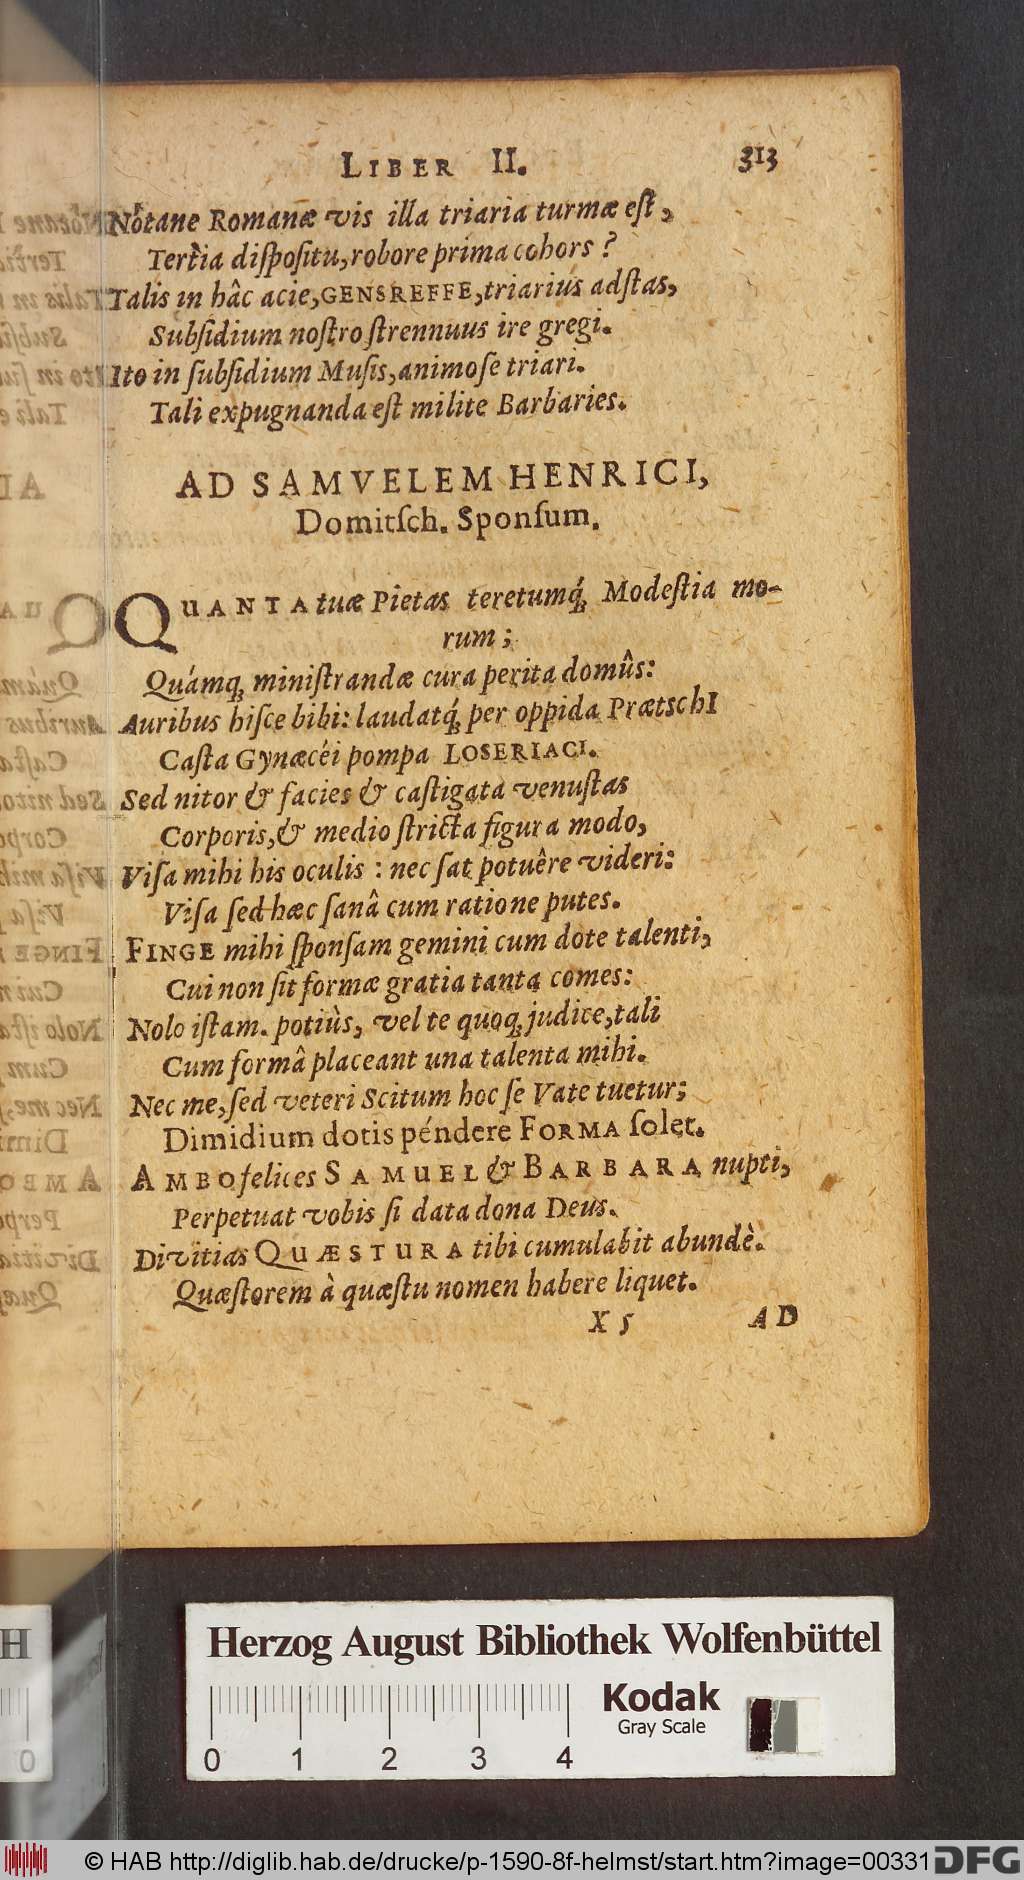 LIBER II. 313
Nótane Romanæ vis illa triaria turmæ eſt,
Tertia diſpoſitu, robore prima cohors?
Talis in hâc acie, GENSREFFE, triarius adſtas,
Subſidium noſtro ſtrennuus ire gregi.
Ito in ſubſidium Muſis, animoſe triari.
Tali expugnanda eſt milite Barbaries.
AD SAMVELEM HENRICI,
Domitſch. Sponſum.
QUANTA tuæ Pietas teretumq́; Modeſtia mo-
rum;
Quámq; miniſtrandæ cura perita domûs:
Auribus hiſce bibi: laudatq́; per oppida PrætschI
Caſta Gynæcéi pompa LOSERIACI.
Sed nitor & facies & caſtigata venuſtas
Corporis, & medio ſtricta figura modo,
Viſa mihi his oculis: nec ſat potuêre videri:
Viſa ſed hæc ſanâ cum ratione putes.
FINGE mihi ſponſam gemini cum dote talenti,
Cui non ſit formæ gratia tanta comes:
Nolo iſtam. potiùs, vel te quoq; judice, tali
Cum formâ placeant una talenta mihi.
Nec me, ſed veteri Scitum hoc ſe Vate tuetur;
Dimidium dotis péndere FORMA ſolet.
AMBO felices SAMUEL & BARBARA nupti,
Perpetuat vobis ſi data dona Deus.
Divitias QUÆSTURA tibi cumulabit abundè.
Quæſtorem à quæſtu nomen habere liquet.
X 5 AD
Herzog August Bibliothek Wolfenbüttel
Kodak
Gray Scale
0 1 2 3 4
H
0
© HAB http://diglib.hab.de/drucke/p-1590-8f-helmst/start.htm?image=00331 DFG